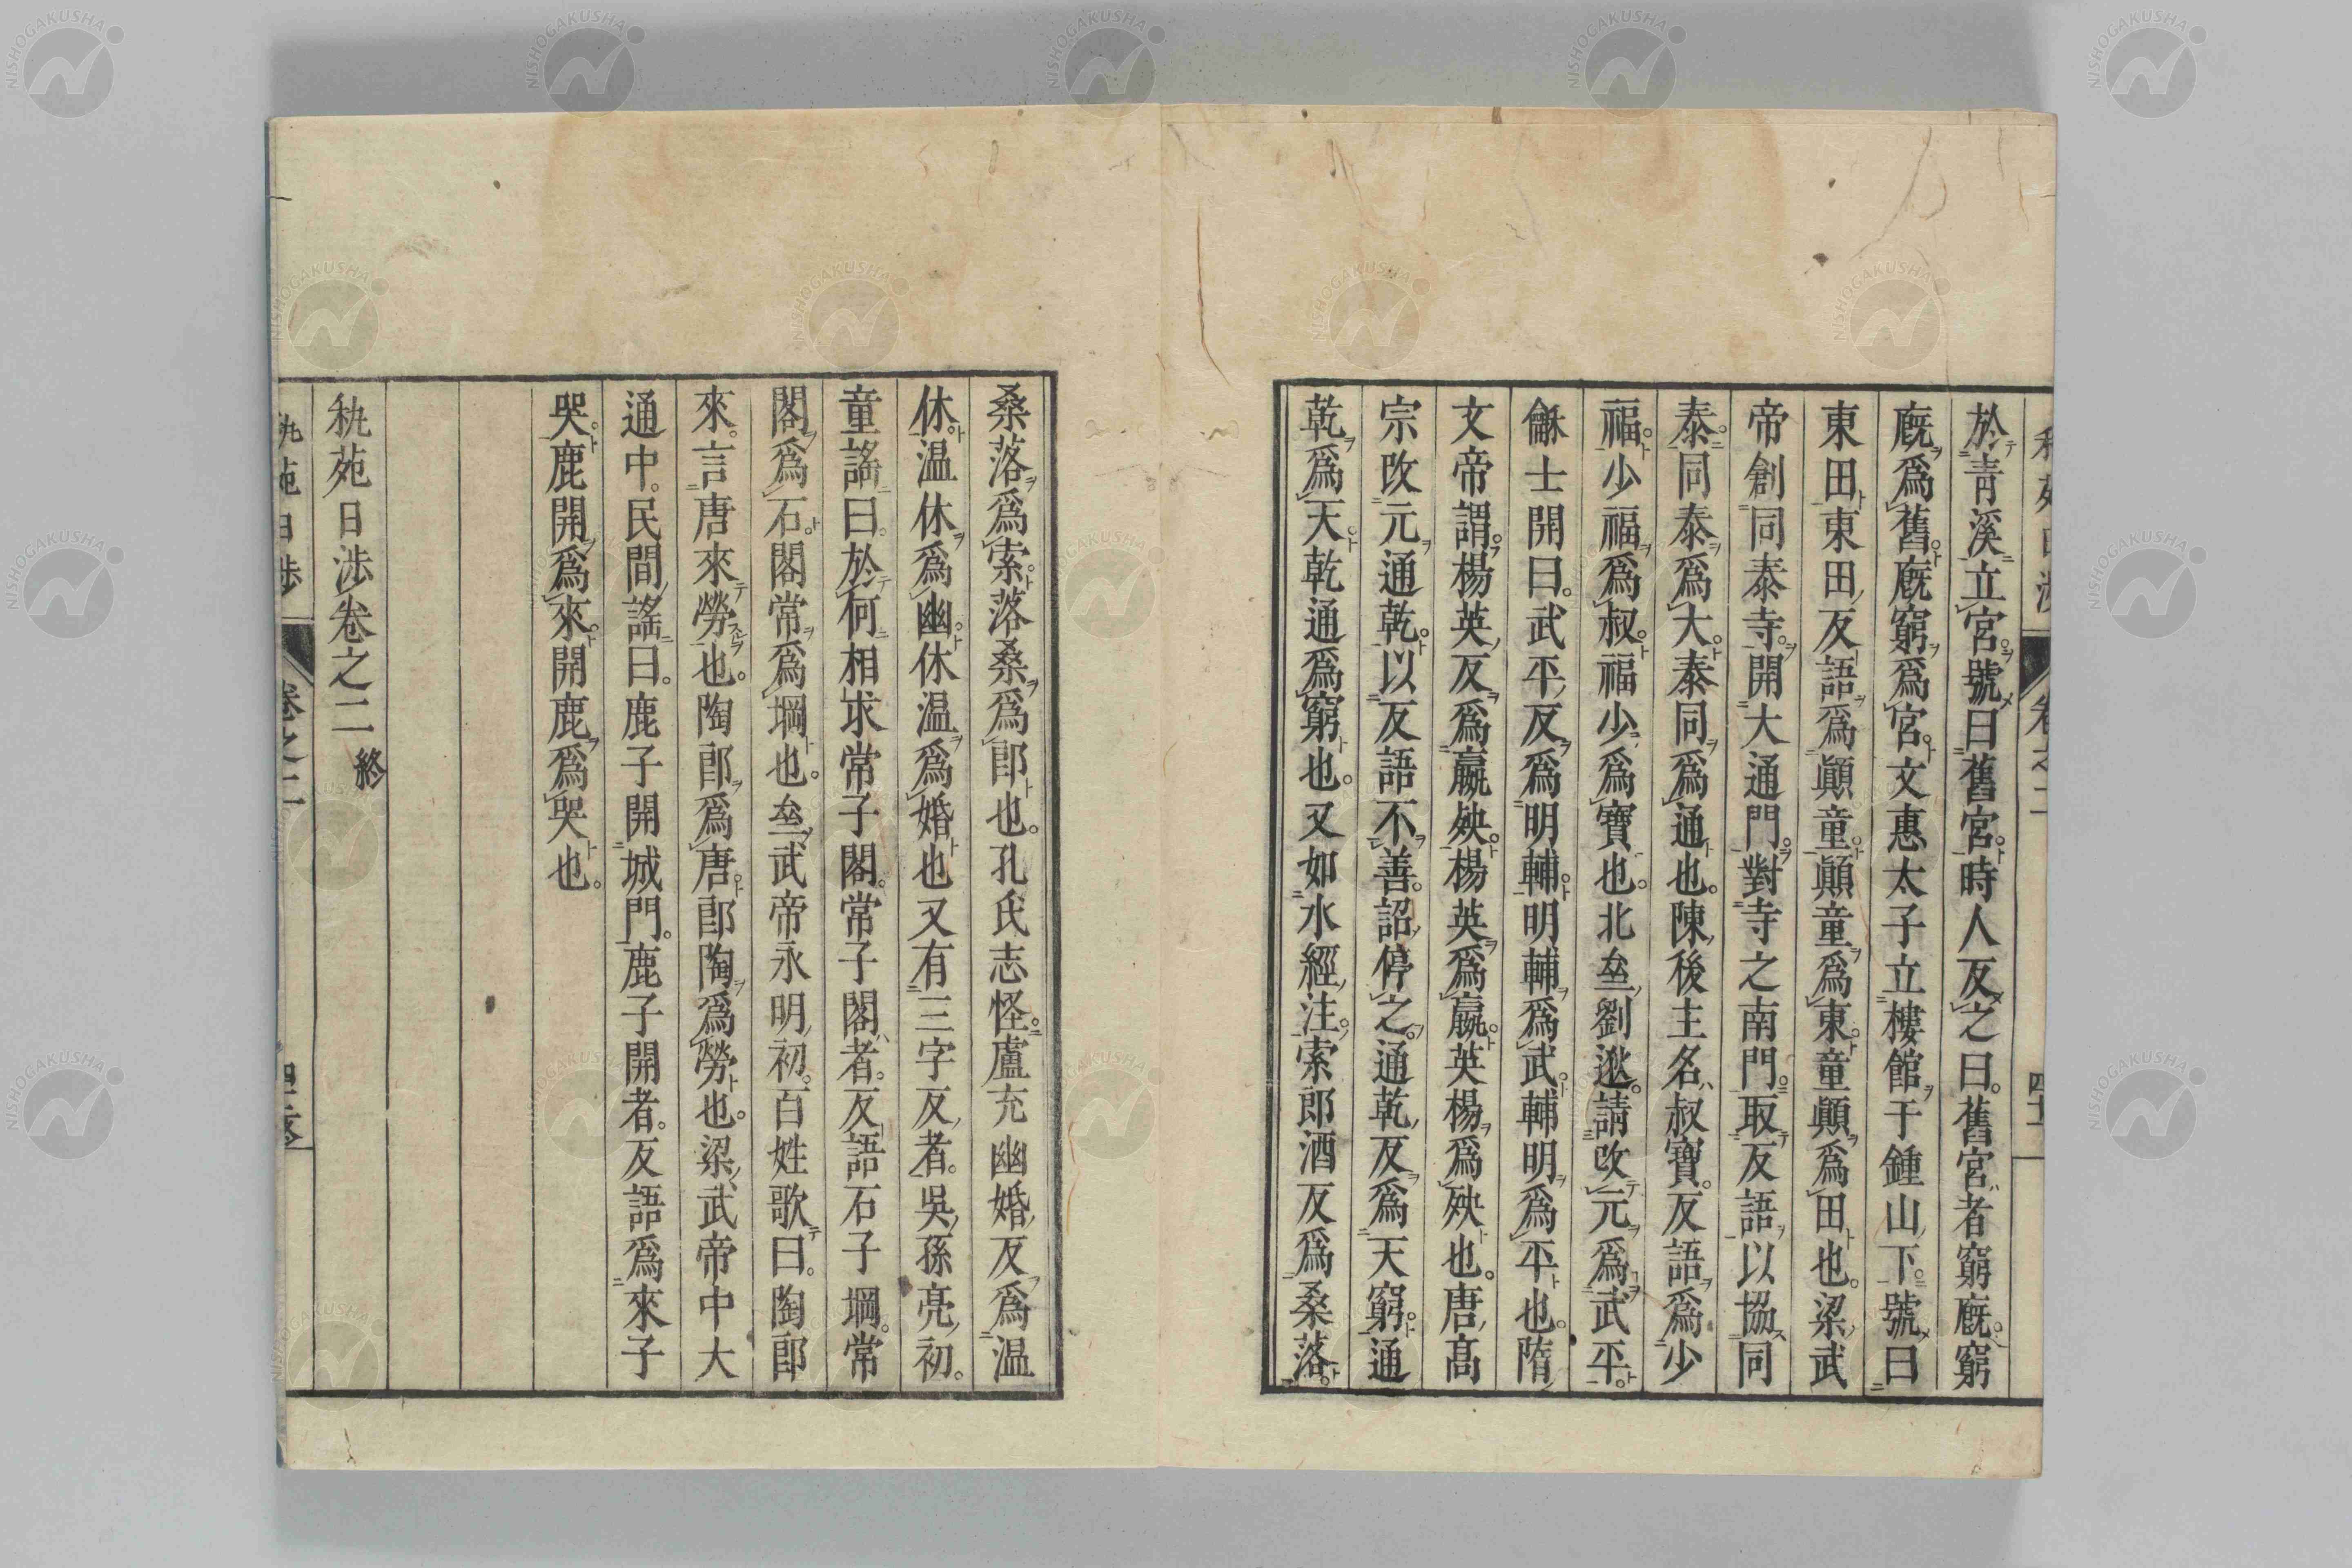 於青溪立宮號曰舊宮時人反之曰舊宮者窮廐窮
廐爲舊廐窮爲宮文惠太子立樓館于鍾山下號曰
東田東田反語爲顚童顚童爲東童顚爲田也梁武
帝創同泰寺開大通門對寺之南門取反語以協同
泰同泰爲大泰同爲通也陳後主名叔寶反語爲少
福少福爲叔福少爲寶也北㙓劉逖請改元爲武平
龢士開曰武平反爲明輔明輔爲武輔明爲平也隋
文帝謂楊英反爲嬴殃楊英爲嬴英楊爲殃也唐髙
宗改元通乾以反語不善詔停之通乾反爲天窮通
乾爲天乾通爲窮也又如水經注索郎酒反爲桑落
桑落爲索落桑爲郎也孔氏志怪盧充幽婚反爲温
休温休爲幽休温爲婚也又有三字反者吳孫亮初
童謠曰於何相求常子閣常子閣者反語石子堈常
閣爲石閣常爲堈也㙓武帝永明初百姓歌曰陶郎
來言唐來勞也陶郎爲唐郎陶爲勞也梁武帝中大
通中民間謠曰鹿子開城門鹿子開者反語爲來子
哭鹿開爲來開鹿爲哭也
秇苑日渉卷之二 終
秇苑日渉 卷之二